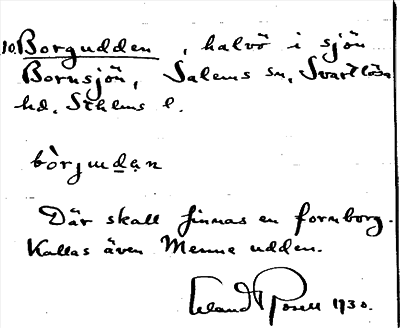 10. Borgudden, halvö i sjön
Bornsjön, Salems sn, Svartlösa
hd, Sthlms l.
bòrjudạn
Där skall finnas en fornborg.
Kallas även Menne udden.
Rosell 1930.